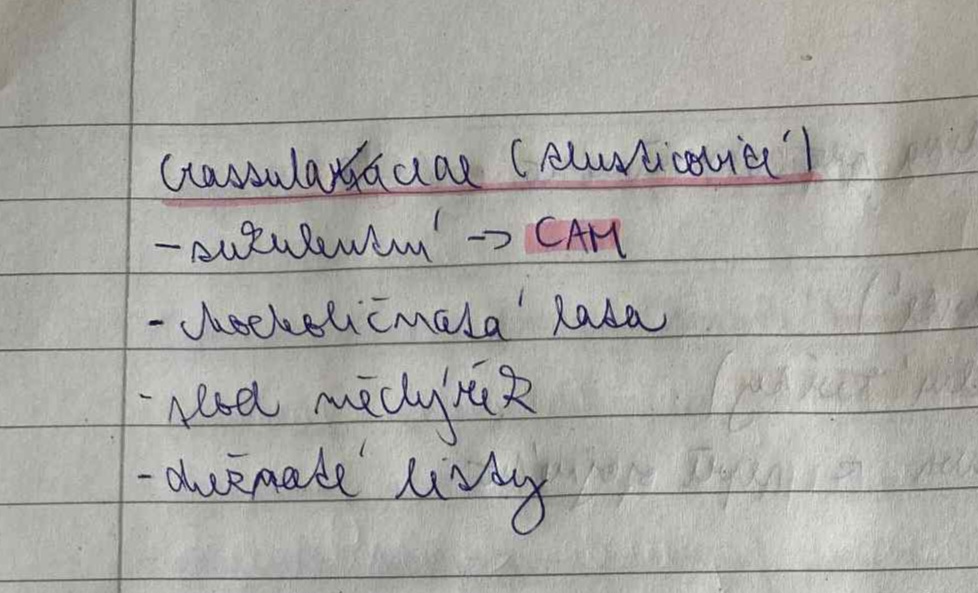 Crassulaceae (tlusticovité)
- sukulentní -> CAM
- chocholičnatá lata
- plod měchýřek
- dužnaté listy